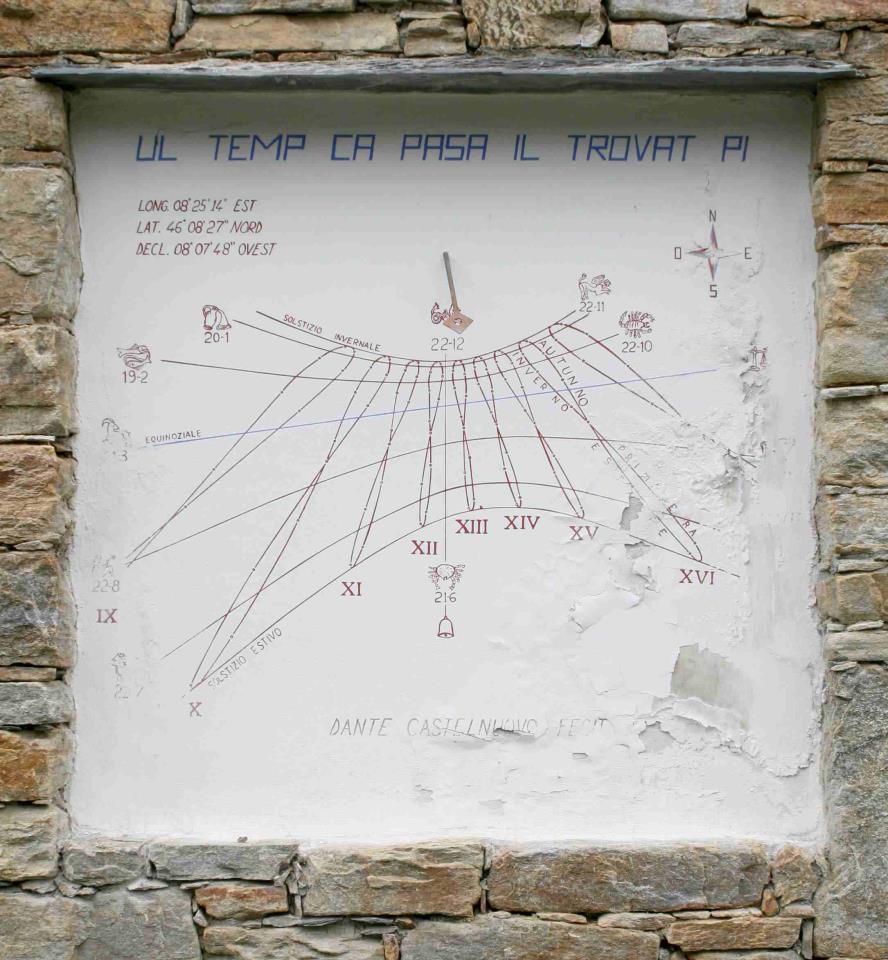 UL TEMP CA PASA IL TROVAT PI
LONG. 08°25'14" EST
LAT. 46°08'27" NORD
DECL. 08°07'48" OVEST
N
O E
S
SOLSTIZIO INVERNALE
22-12
22-11
20-1
22-10
19-2
AUTUNNO
INVERNO
EQUINOZIALE
3
PRIMAVERA
XIII
XIV
XV
XII
XVI
XI
22-8
21-6
IX
SOLSTIZIO ESTIVO
X
DANTE CASTELNUOVO FECIT